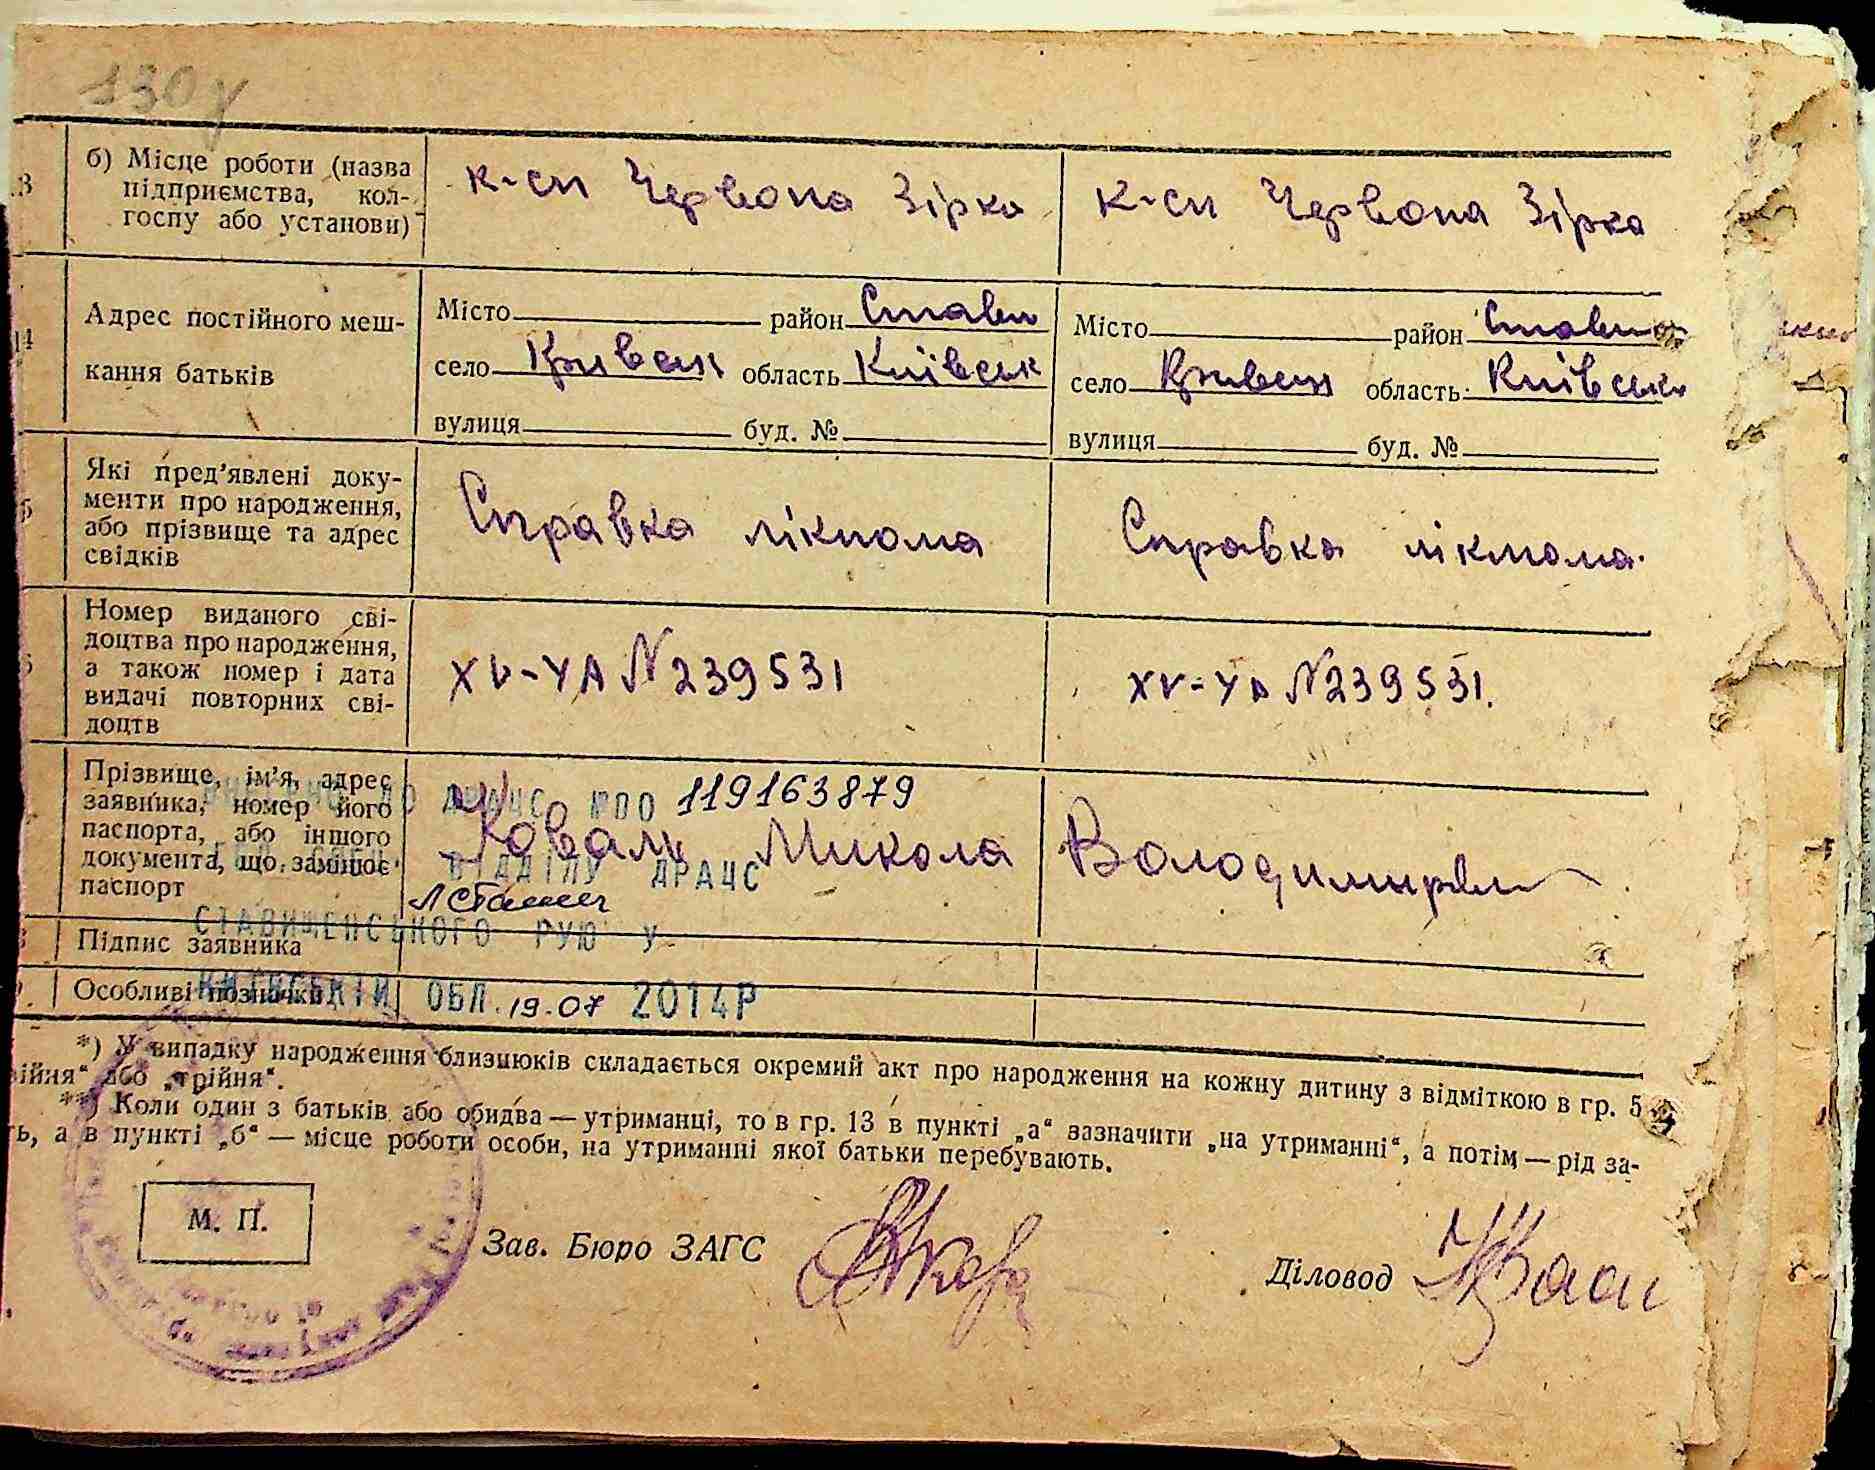 130у
б) Місце роботи (назва
підприємства, кол-
госпу або установи)
к-сп Червона Зірка
к-сп Червона Зірка
Адрес постійного меш-
кання батьків
Місто район Стави
село Кривец область Київськ
вулиця буд. №
Місто район Стави
село Кривец область Київськ
вулиця буд. №
Які пред'явлені доку-
менти про народження,
або прізвище та адрес
свідків
Справка лікпома
Справка лікпома.
Номер виданого сві-
доцтва про народження,
а також номер і дата
видачі повторних сві-
доцтв
XV-УА № 239531
XV-УА № 239531.
Прізвище, ім'я, адрес
заявника, номер його
паспорта, або іншого
документа, що замінює
паспорт
ДРАЦС №00 119163879
Коваль Микола Володимиров
ВІДДІЛУ ДРАЦС
СТАВИЩЕНСЬКОГО РУЮ У
Підпис заявника
Особливі позначки
КИЇВСЬКІЙ ОБЛ. 19.07 2014Р
*) У випадку народження близнюків складається окремий акт про народження на кожну дитину з відміткою в гр. 5
ійня“ або „трійня“.
**) Коли один з батьків або обидва — утриманці, то в гр. 13 в пункті „а“ зазначити „на утриманні“, а потім — рід за-
ть, а в пункті „б“ — місце роботи особи, на утриманні якої батьки перебувають.
М. П.
Зав. Бюро ЗАГС
Діловод